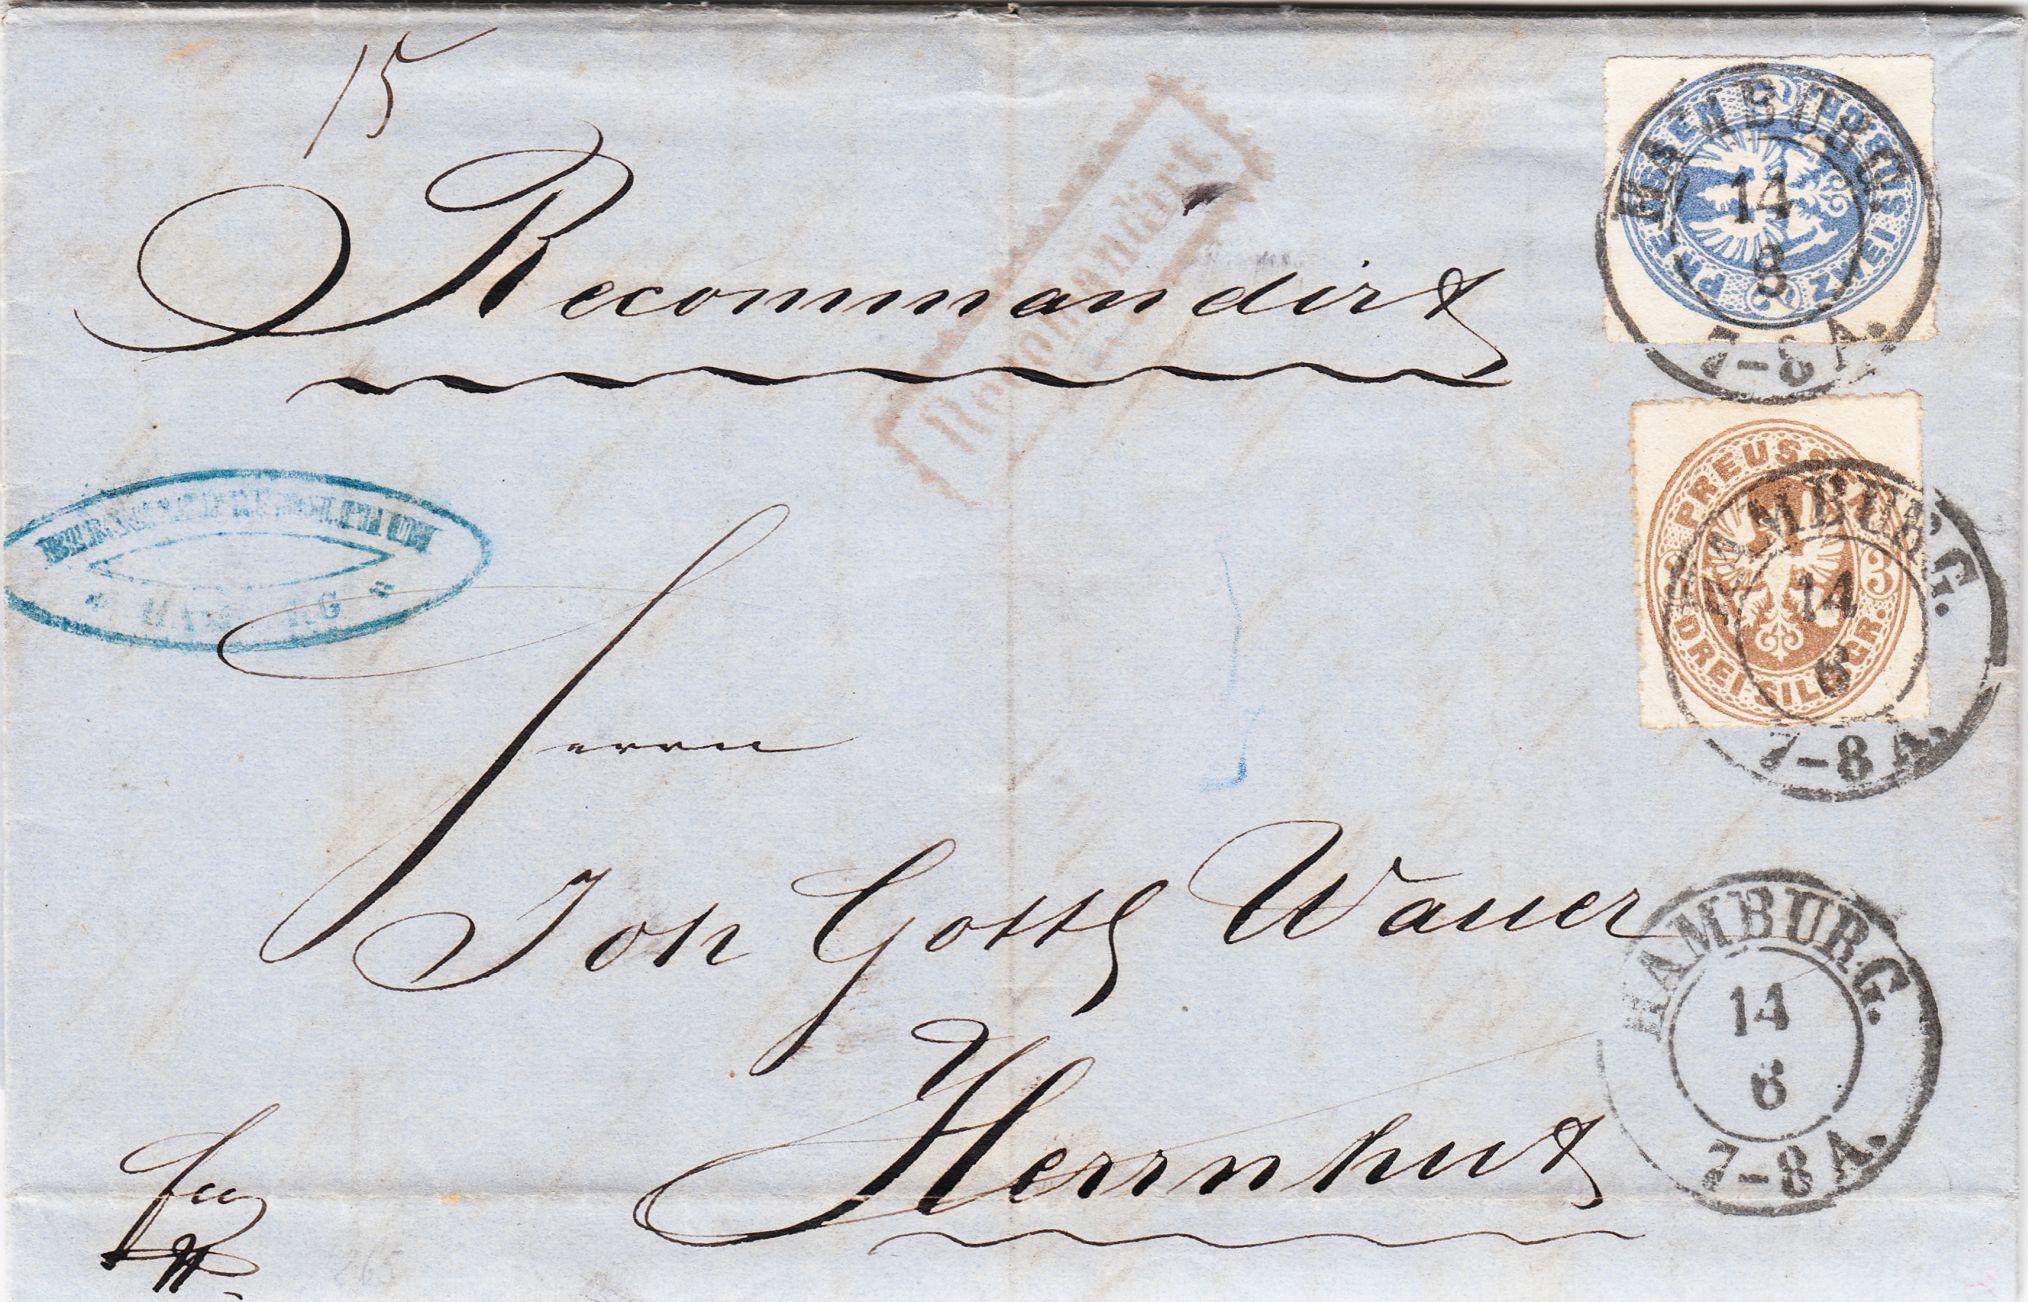 15
Recommandirt
Recommandirt.
Herrn
Joh Gottl Wauer
Herrnhut
PREUSSEN
ZWEI SILBGR.
2
HAMBURG.
14
8
7-8 A.
PREUSSEN
DREI SILBGR.
3
HAMBURG.
14
8
7-8 A.
HAMBURG.
14
8
7-8 A.
265